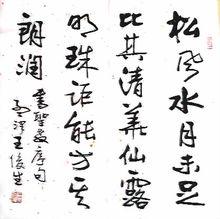 松风水月未足
比其清华仙露
明珠讵能方其
朗润
书圣教序句
王俊生